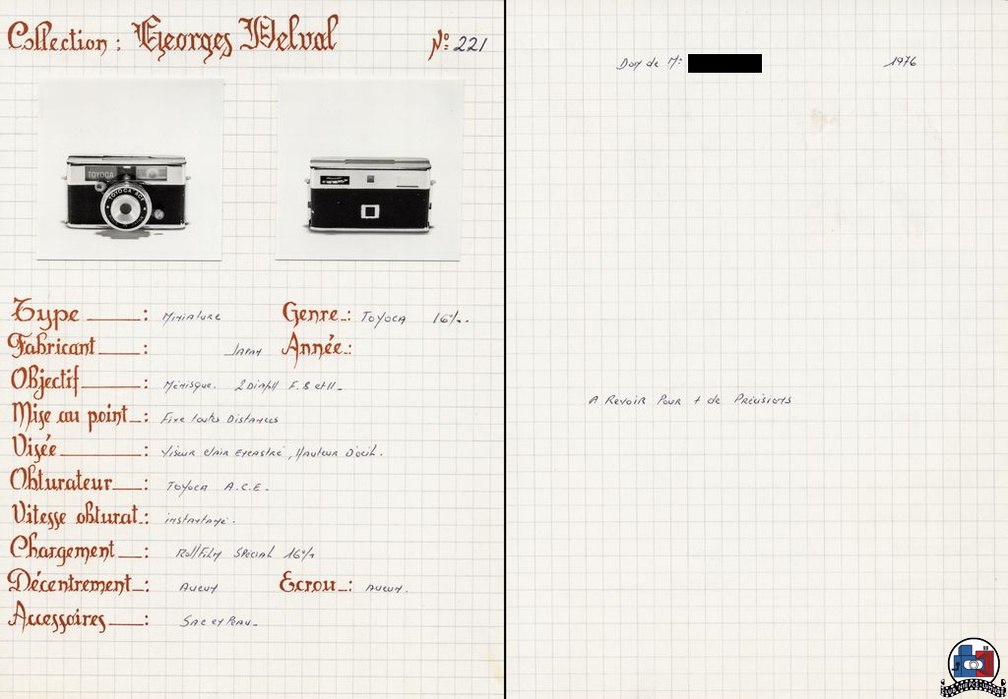 Collection : Georges Delval Nº 221
TOYOCA
TOYOCA ACE
Type : Miniature Genre : Toyoca 16m/m.
Fabricant : Japan Année :
Objectif : Ménisque. 2 Diaph F. 8 et 11.
Mise au point : Fixe toutes Distances
Visée : Viseur clair encastré, Hauteur d'œil.
Obturateur : Toyoca A.C.E.
Vitesse obturat. : instantané.
Chargement : Roll Film Spécial 16m/m
Décentrement : Aucun Ecrou : Aucun.
Accessoires : Sac et Peau.
Don de Mr 1976
A Revoir Pour + de Précisions